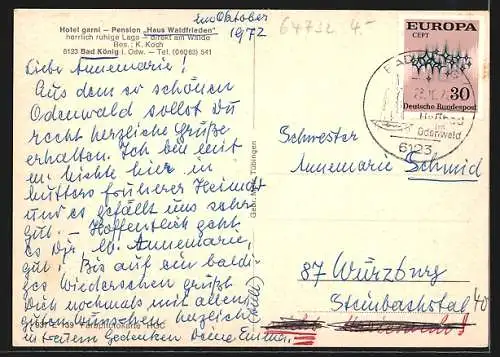 Hotel garni – Pension „Haus Waldfrieden"
herrlich ruhige Lage – direkt am Walde
Bes.: K. Koch
6123 Bad König i. Odw. – Tel. (06063) 541
im Oktober
1972
64732 4.-
EUROPA
CEPT
30
Deutsche Bundespost
BAD
Heilbad
im
Odenwald
6123
Liebe Annemarie!
Aus dem so schönen
Odenwald sollst Du
recht herzliche Grüße
erhalten. Ich bin mit
hier in
Mutters früherer Heimat
und es gefällt uns sehr
gut. – Hoffentlich geht
es Dir, lb. Annemarie,
gut! Bis auf ein baldi-
ges Wiedersehen grüßt
Dich nochmals mit allen
guten Wünschen herzlich
in treuem Gedenken Deine Emmi
Gebr. Metz, Tübingen
Schwester
Annemarie Schmid
87 Würzburg
Steinbachstal 40